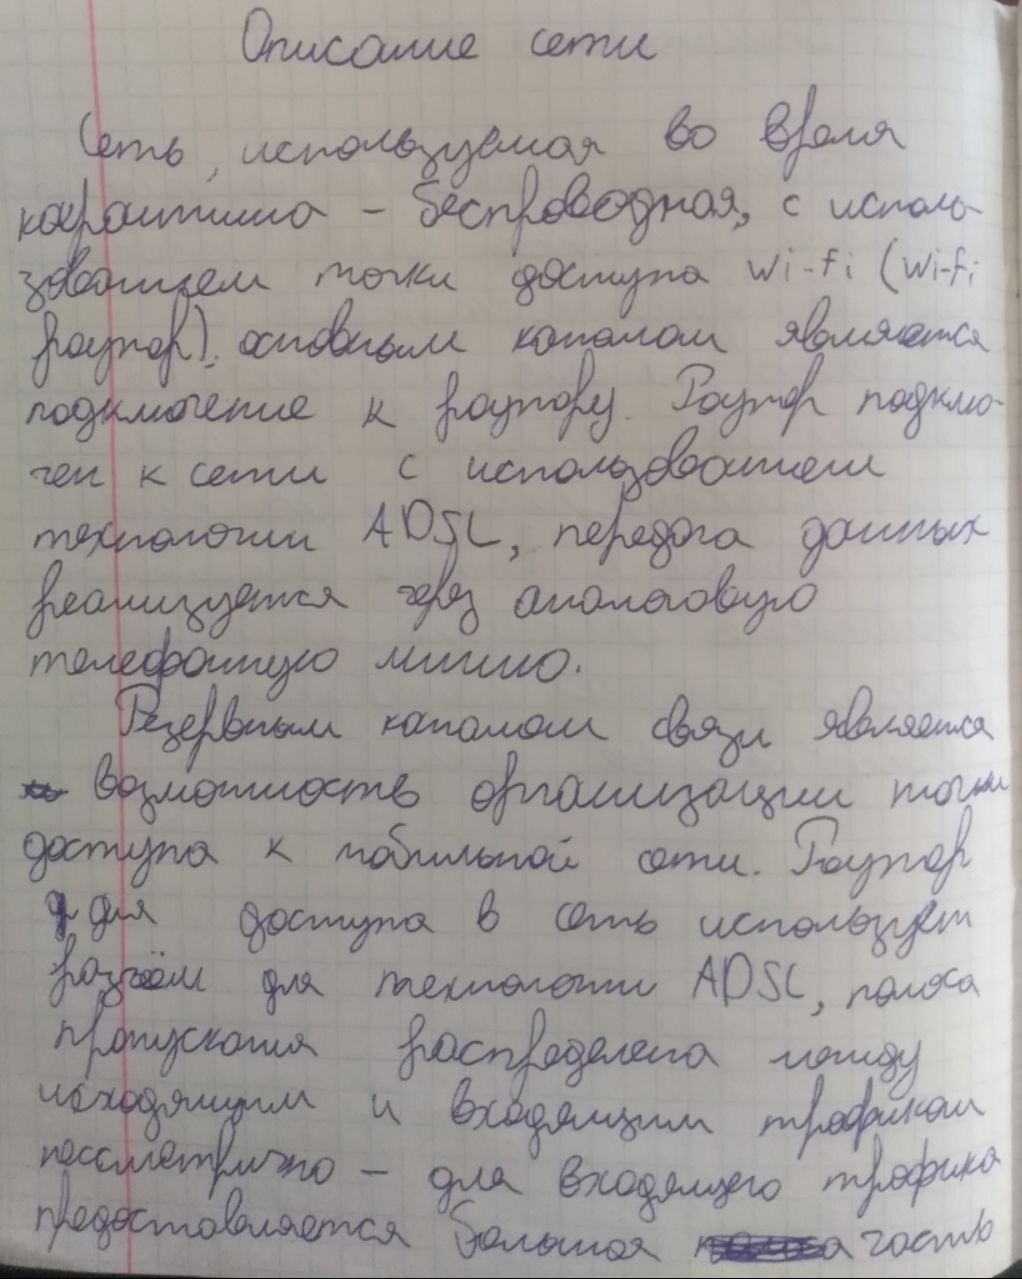 Описание сети
Сеть, используемая во время
карантина - беспроводная, с исполь-
зованием точки доступа Wi-fi (Wi-fi
роутер). основным каналом является
подключение к роутеру. Роутер подклю-
чен к сети с использованием
технологии ADSL, передача данных
реализуется через аналоговую
телефонную линию.
Резервным каналом связи является
возможность организации точки
доступа к мобильной сети. Роутер
для доступа в сеть использует
разъём для технологии ADSL, полоса
пропускания распределена между
исходящим и входящим трафиком
нессметрично - для входящего трафика
предоставляется большая часть